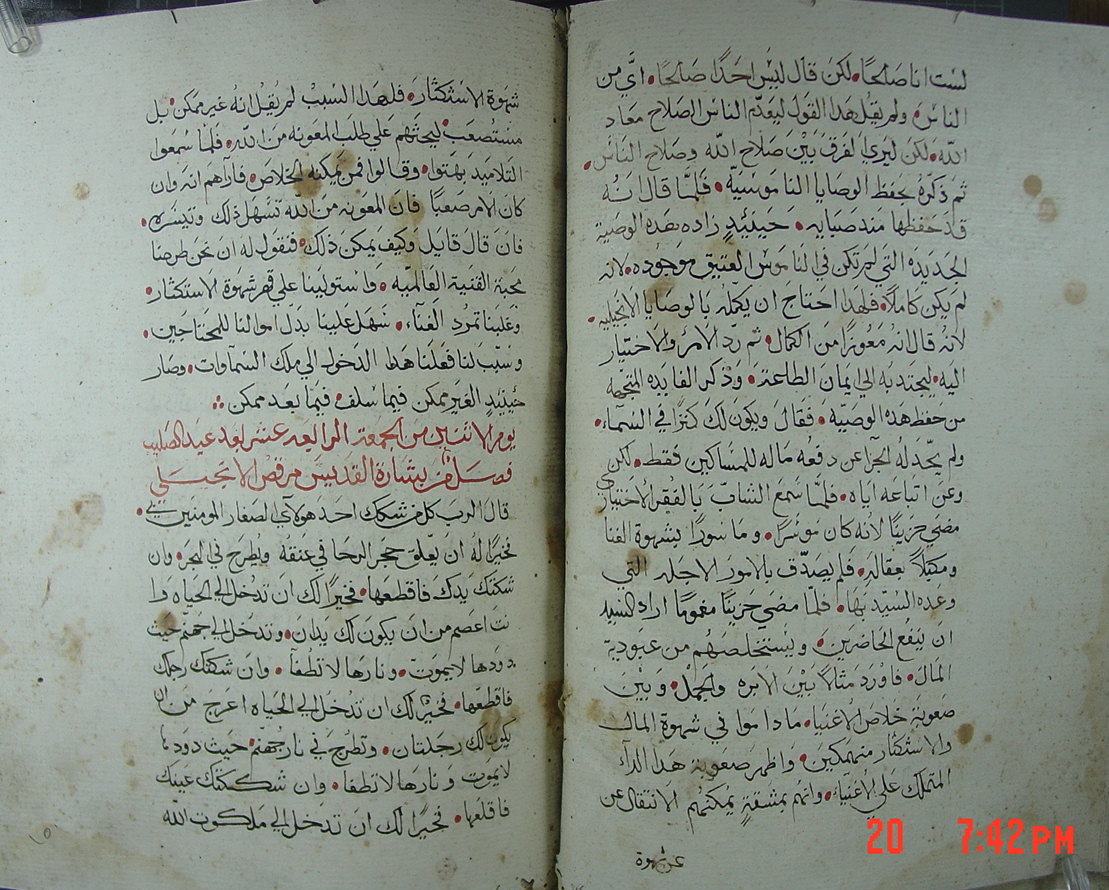 لست انا صالحًا، لكن قال ليس احدًا صالحًا، اي من
الناس، ولم يقل هذا القول ليعدم الناس الصلاح معاد
الله، لكن ليري الفرق بين صلاح الله وصلاح الناس،
ثم ذكره بحفظ الوصايا الناموسية، فلما قال انه
قد حفظها منذ صبايه، حينيدٍ زاده هذه الوصية
الجديده التي لم تكن في الناموس العتيق موجوده، لانه
لم يكن كاملًا، فلهذا احتاج ان يكمله بالوصايا الانجيليه،
لانه قال انه معوزًا من الكمال، ثم رد الامر والاختيار
اليه، ليجتذبه الي ايمان الطاعة، وذكر الفايده المتجهه
من حفظ هذه الوصيه، فقال ويكون لك كنزًا في السماء،
ولم يجد له اجرًا عن دفعه ماله للمساكين فقط، لكن
وعن اتباعه اياه، فلما سمع الشاب بالفقر الاختيار
مضي حزينًا لانه كان موسرًا، وماسورًا بشهوة الغنا
ومكبلًا بعقاله، فلم يصدق بالامور الاجله التي
وعده السيد بها، فلما مضي حزينًا مغمومًا اراد السيد
ان ينفع الحاضرين، ويستخلصهم من عبودية
المال، فاورد مثالًا بين الابره والجمل، وبين
صعوبة خلاص الاغنيا، ما داموا في شهوة المال
والاستكثار منهمكين، واظهر صعوبة هذا الداء
المتملك علي الاغنياء، وانهم بمشقةٍ يمكنهم الانتقال عن
عن شهوة
شهوة الاستكثار، فلهذا السبب لم يقل انه غير ممكن، بل
مستصعب، ليحثهم علي طلب المعونه من الله، فلما سمعوا
التلاميد بهتوا، وقالوا فمن يمكنه الخلاص، فاراهم انه وان
كان الامر صعبًا فان المعونه من الله تسهل ذلك وتيسره،
فان قال قايل وكيف يمكن ذلك، فنقول له ان نحن طرحنا
محبة القنية العالميه، واستولينا علي قهر شهوة الاستكثار،
وغلبنا تمرد الغناء، سهل علينا بدل اموالنا للمحتاجين،
وسبب لنا فعلنا هذا الدخول الي ملك السماوات، وصار
حينيدٍ الغير ممكن فيما سلف، فيما بعد ممكن
يوم الاتنين من الجمعة الرابعه عشر بعد عيد الصليب
فصل من بشارة القديس مرقص الانجيلي
قال الرب كل من شكك احد هولاي الصغار المومنين بي،
فخيرًا له ان يعلق حجر الرحا في عنقه ويطرح في البحر، وان
شكتك يدك فاقطعها، فخيرًا لك ان تدخل الي الحياه وا
نت اعصم من ان يكون لك يدان، وتدخل الي جهنم حيث
دودها لا يموت، ونارها لا تطفا، وان شكتك رجلك
فاقطعها، فخير لك ان تدخل الي الحياه اعرج من ان
يكون لك رجلتان، وتطرح في نار جهنم، حيث دودها
لا يموت ونارها لا تطفا، وان شككتك عينك
فاقلعها، فخيرًا لك ان تدخل الي ملكوت الله
20 7:42 PM